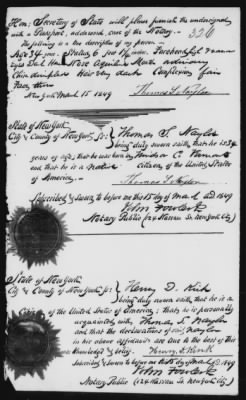 Hon. Secretary of State will please furnish the undersigned
with a Passport, addressed, care of the Notary.
326
The following is a true description of my person:
Age 34 years. Stature 6 feet inches. Forehead
Eyes Nose Aquiline Mouth
Chin dimpled Hair very dark Complexion fair
Face thin
New York March 15 1849
Thomas S. Naylor
State of New York
City & County of New York ss: Thomas S. Naylor
being duly sworn saith, that he is 34
years of age, that he was born
and that he is a Native citizen of the United States
of America.
Thomas S. Naylor
Subscribed & Sworn to before me this 15 day of March A.D. 1849
John
Notary Public (24 Nassau St. New York City)
State of New York
City & County of New York ss: Henry D. Kirk
being duly sworn saith, that he is a
Citizen of the United States of America; that he is personally
acquainted with Thomas S. Naylor
and that the declaration of said Naylor
in his above affidavit are true to the best of his
knowledge & belief. Henry D. Kirk
Subscribed & Sworn to before me this day of March A.D. 1849
John
Notary Public (24 Nassau St. New York City)